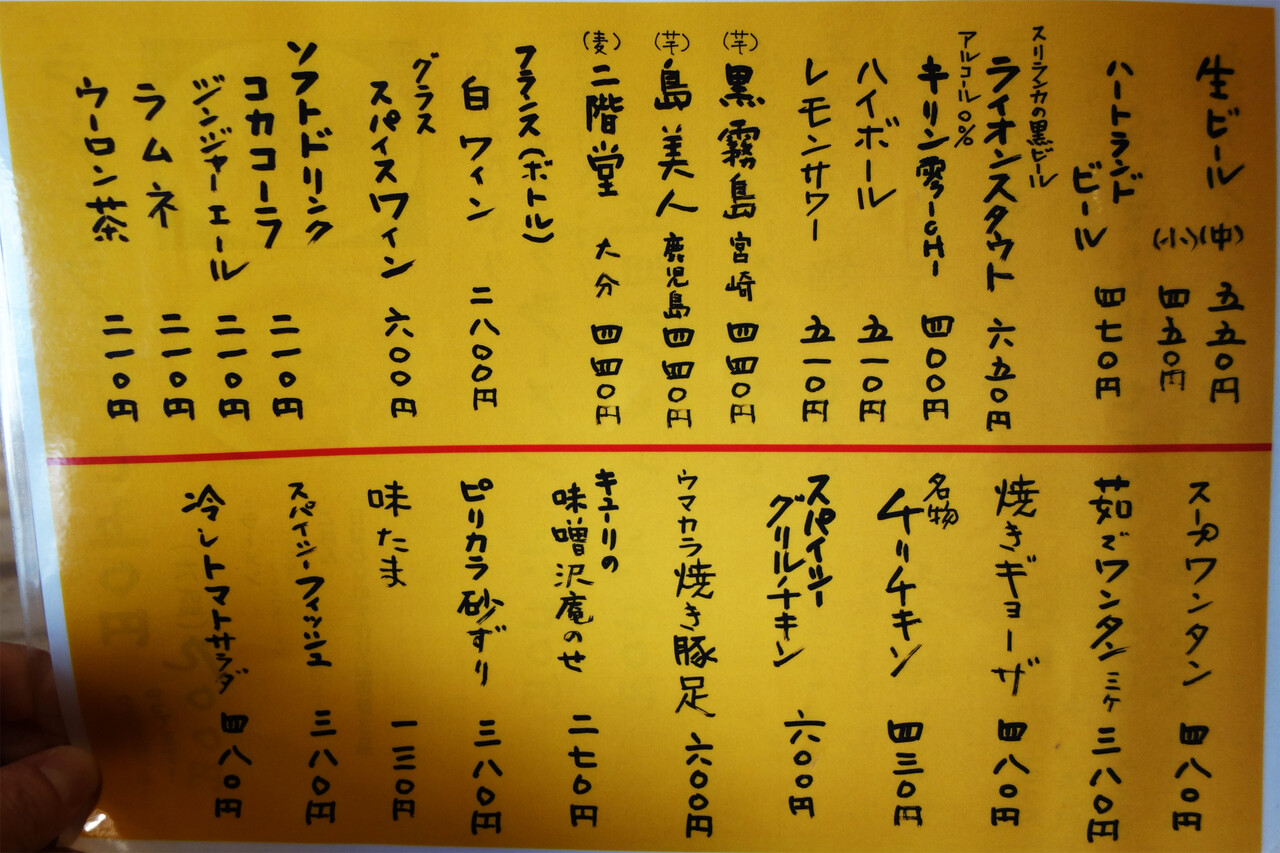 生ビール (中) 五五〇円
(小) 四五〇円
ハートランド
ビール 四七〇円
スリランカの黒ビール
ライオンスタウト 六五〇円
アルコール0%
キリン零ICHI 四〇〇円
ハイボール 五一〇円
レモンサワー 五一〇円
(芋) 黒霧島 宮崎 四四〇円
(芋) 島美人 鹿児島 四四〇円
(麦) 二階堂 大分 四四〇円
フランス(ボトル)
白ワイン 二八〇〇円
グラス
スパイスワイン 六〇〇円
ソフトドリンク
コカコーラ 二一〇円
ジンジャーエール 二一〇円
ラムネ 二一〇円
ウーロン茶 二一〇円
スープワンタン 四八〇円
茹でワンタン 三ヶ 三八〇円
焼きギョーザ 四八〇円
名物
チリチキン 四三〇円
スパイシー
グリルチキン 六〇〇円
ウマカラ焼き豚足 六〇〇円
キューリの
味噌沢庵のせ 二七〇円
ピリカラ砂ずり 三八〇円
味たま 一三〇円
スパイシーフィッシュ 三八〇円
冷しトマトサラダ 四八〇円